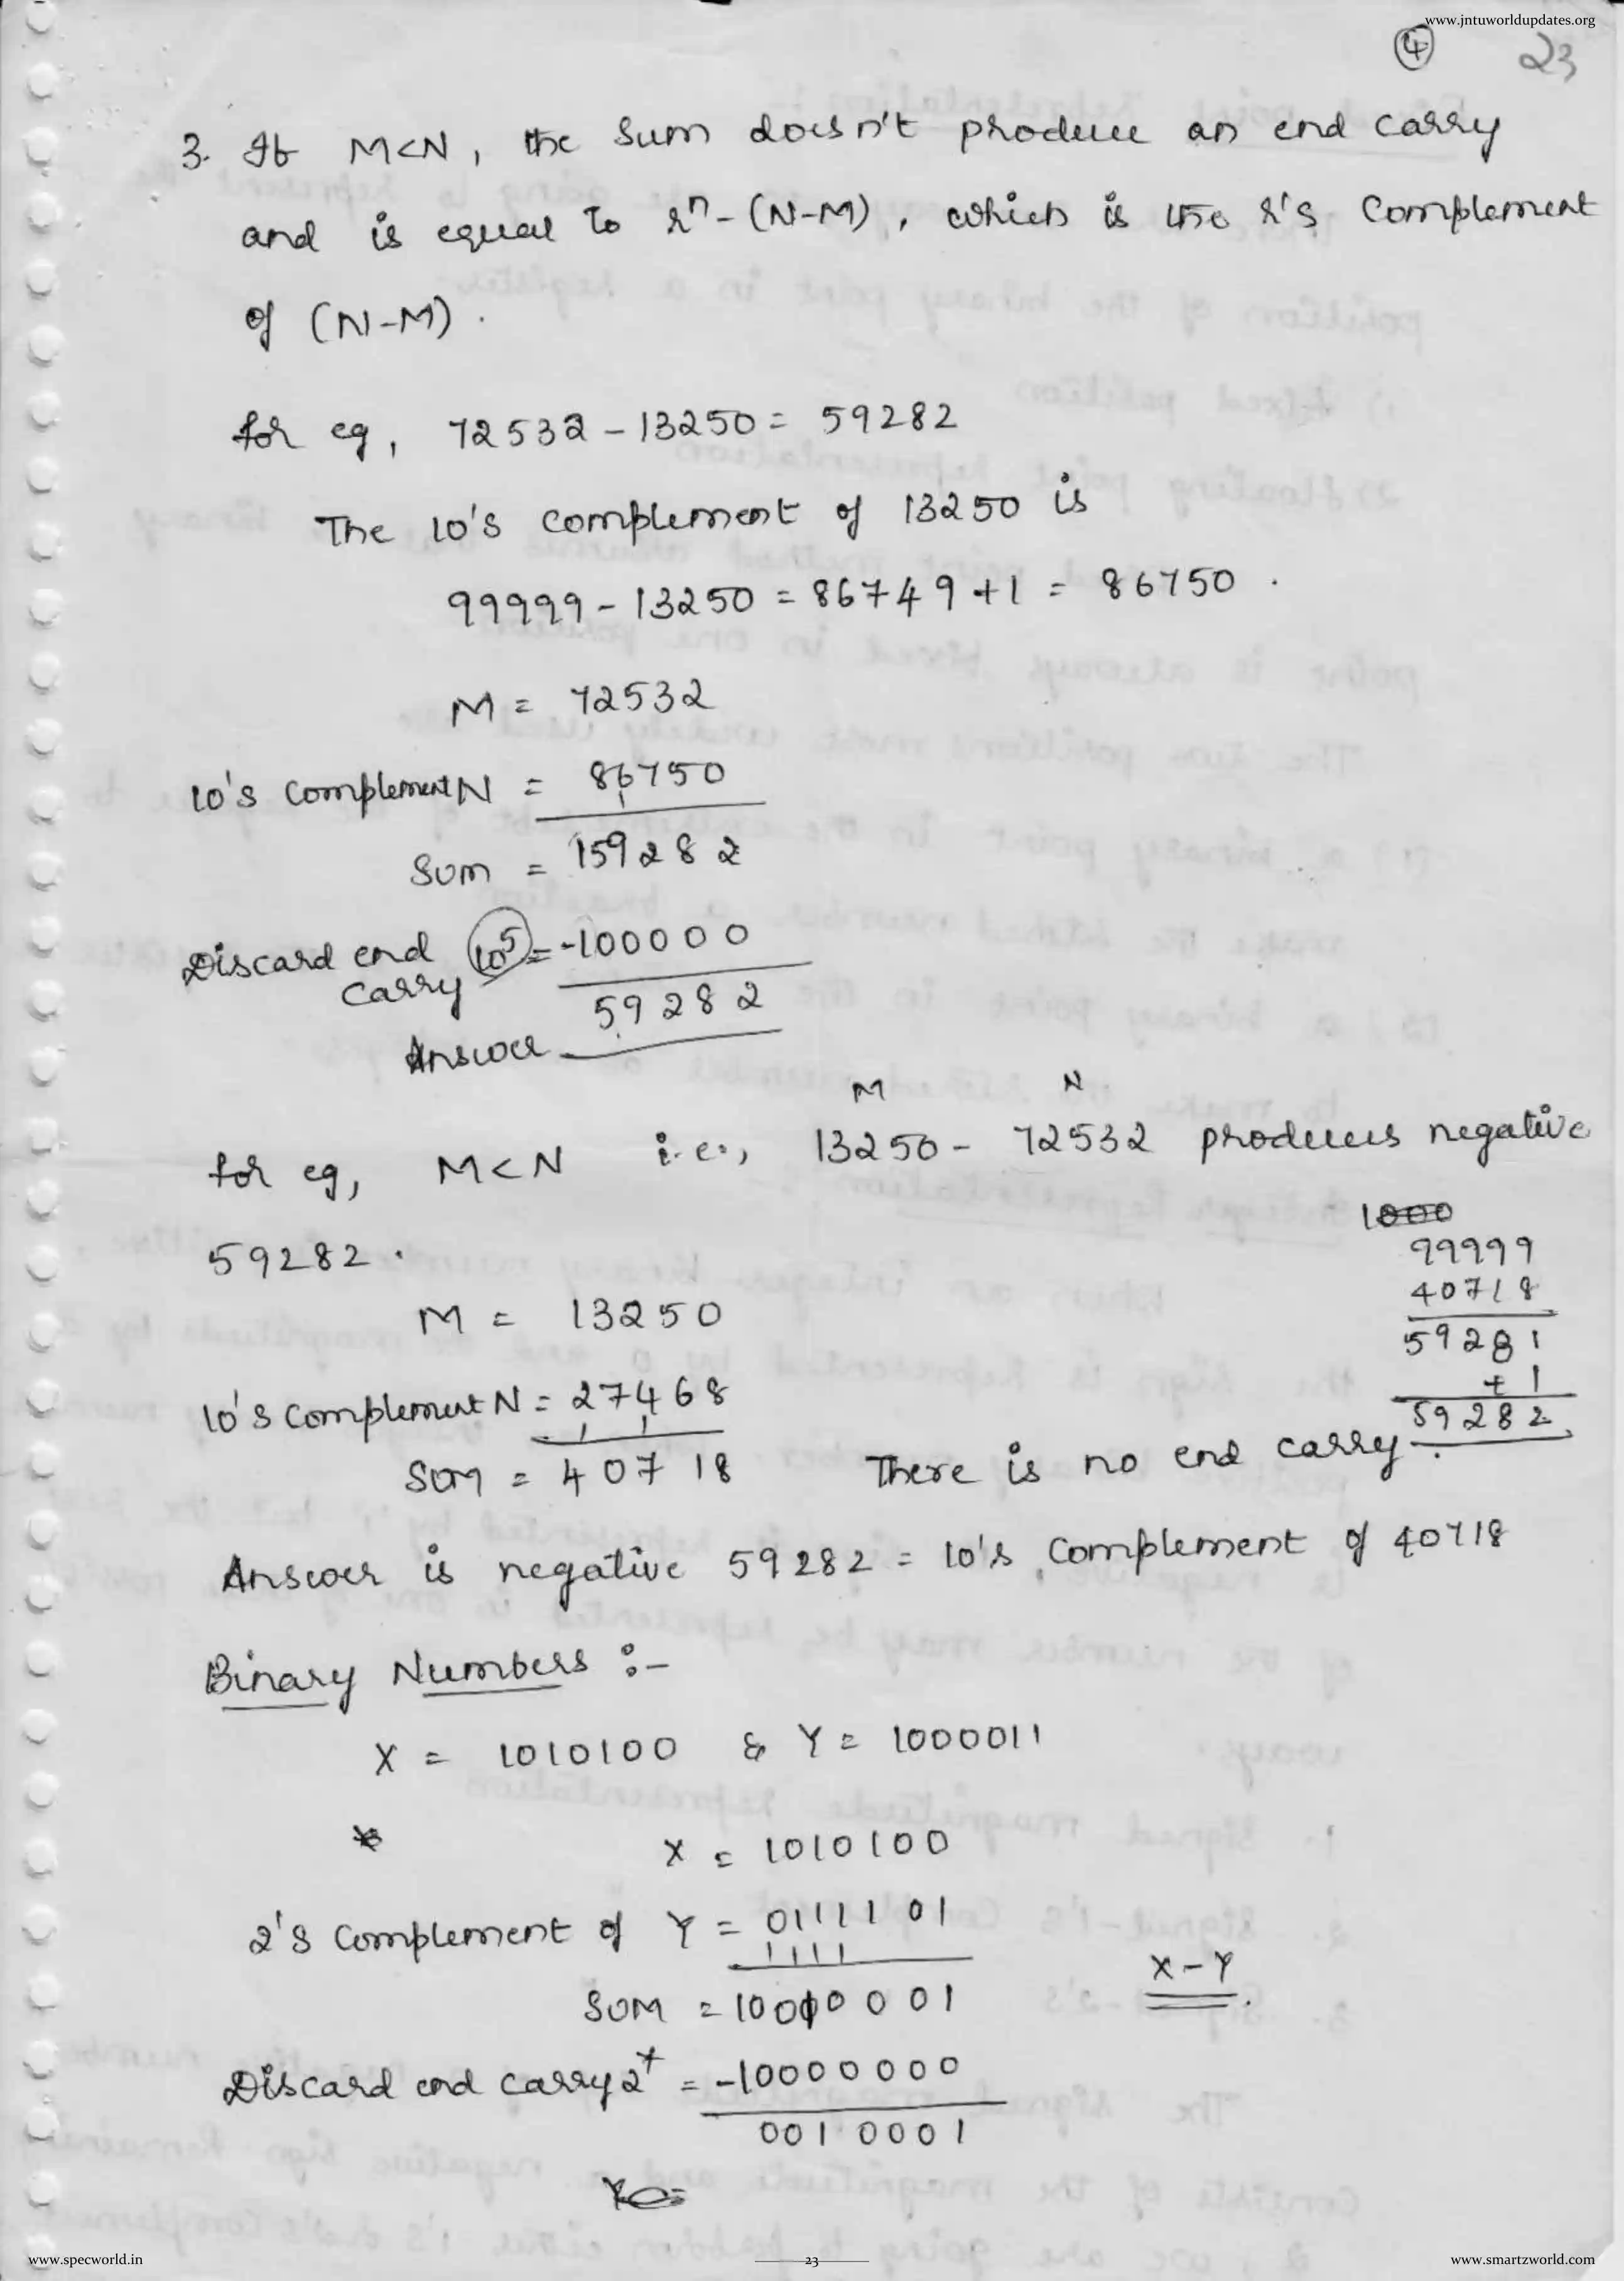 www.jntuworldupdates.org
4 23
3. If M<N, the Sum doesn't produce an end carry
and is equal to r^n-(N-M), which is the r's Complement
of (N-M).
for eg, 72532-13250= 59282
The 10's complement of 13250 is
99999-13250=86749+1= 86750.
M= 72532
10's complement N = 86750
Sum = 159282
Discard end carry 10^5= -100000
59282
Answer
M N
for eg, M<N i.e., 13250- 72532 produces negative
59282.
1000
99999
40718
59281
+1
59282
M = 13250
10's complement N= 27468
1 1
Sum = 40718 There is no end carry.
Answer is negative 59282= 10's complement of 40718
Binary Numbers :-
X = 1010100 & Y= 1000011
X = 1010100
2's complement of Y = 0111101
1111
SUM = 10010001 X-Y
Discard end carry 2^7 = -10000000
0010001
www.specworld.in
23
www.smartzworld.com